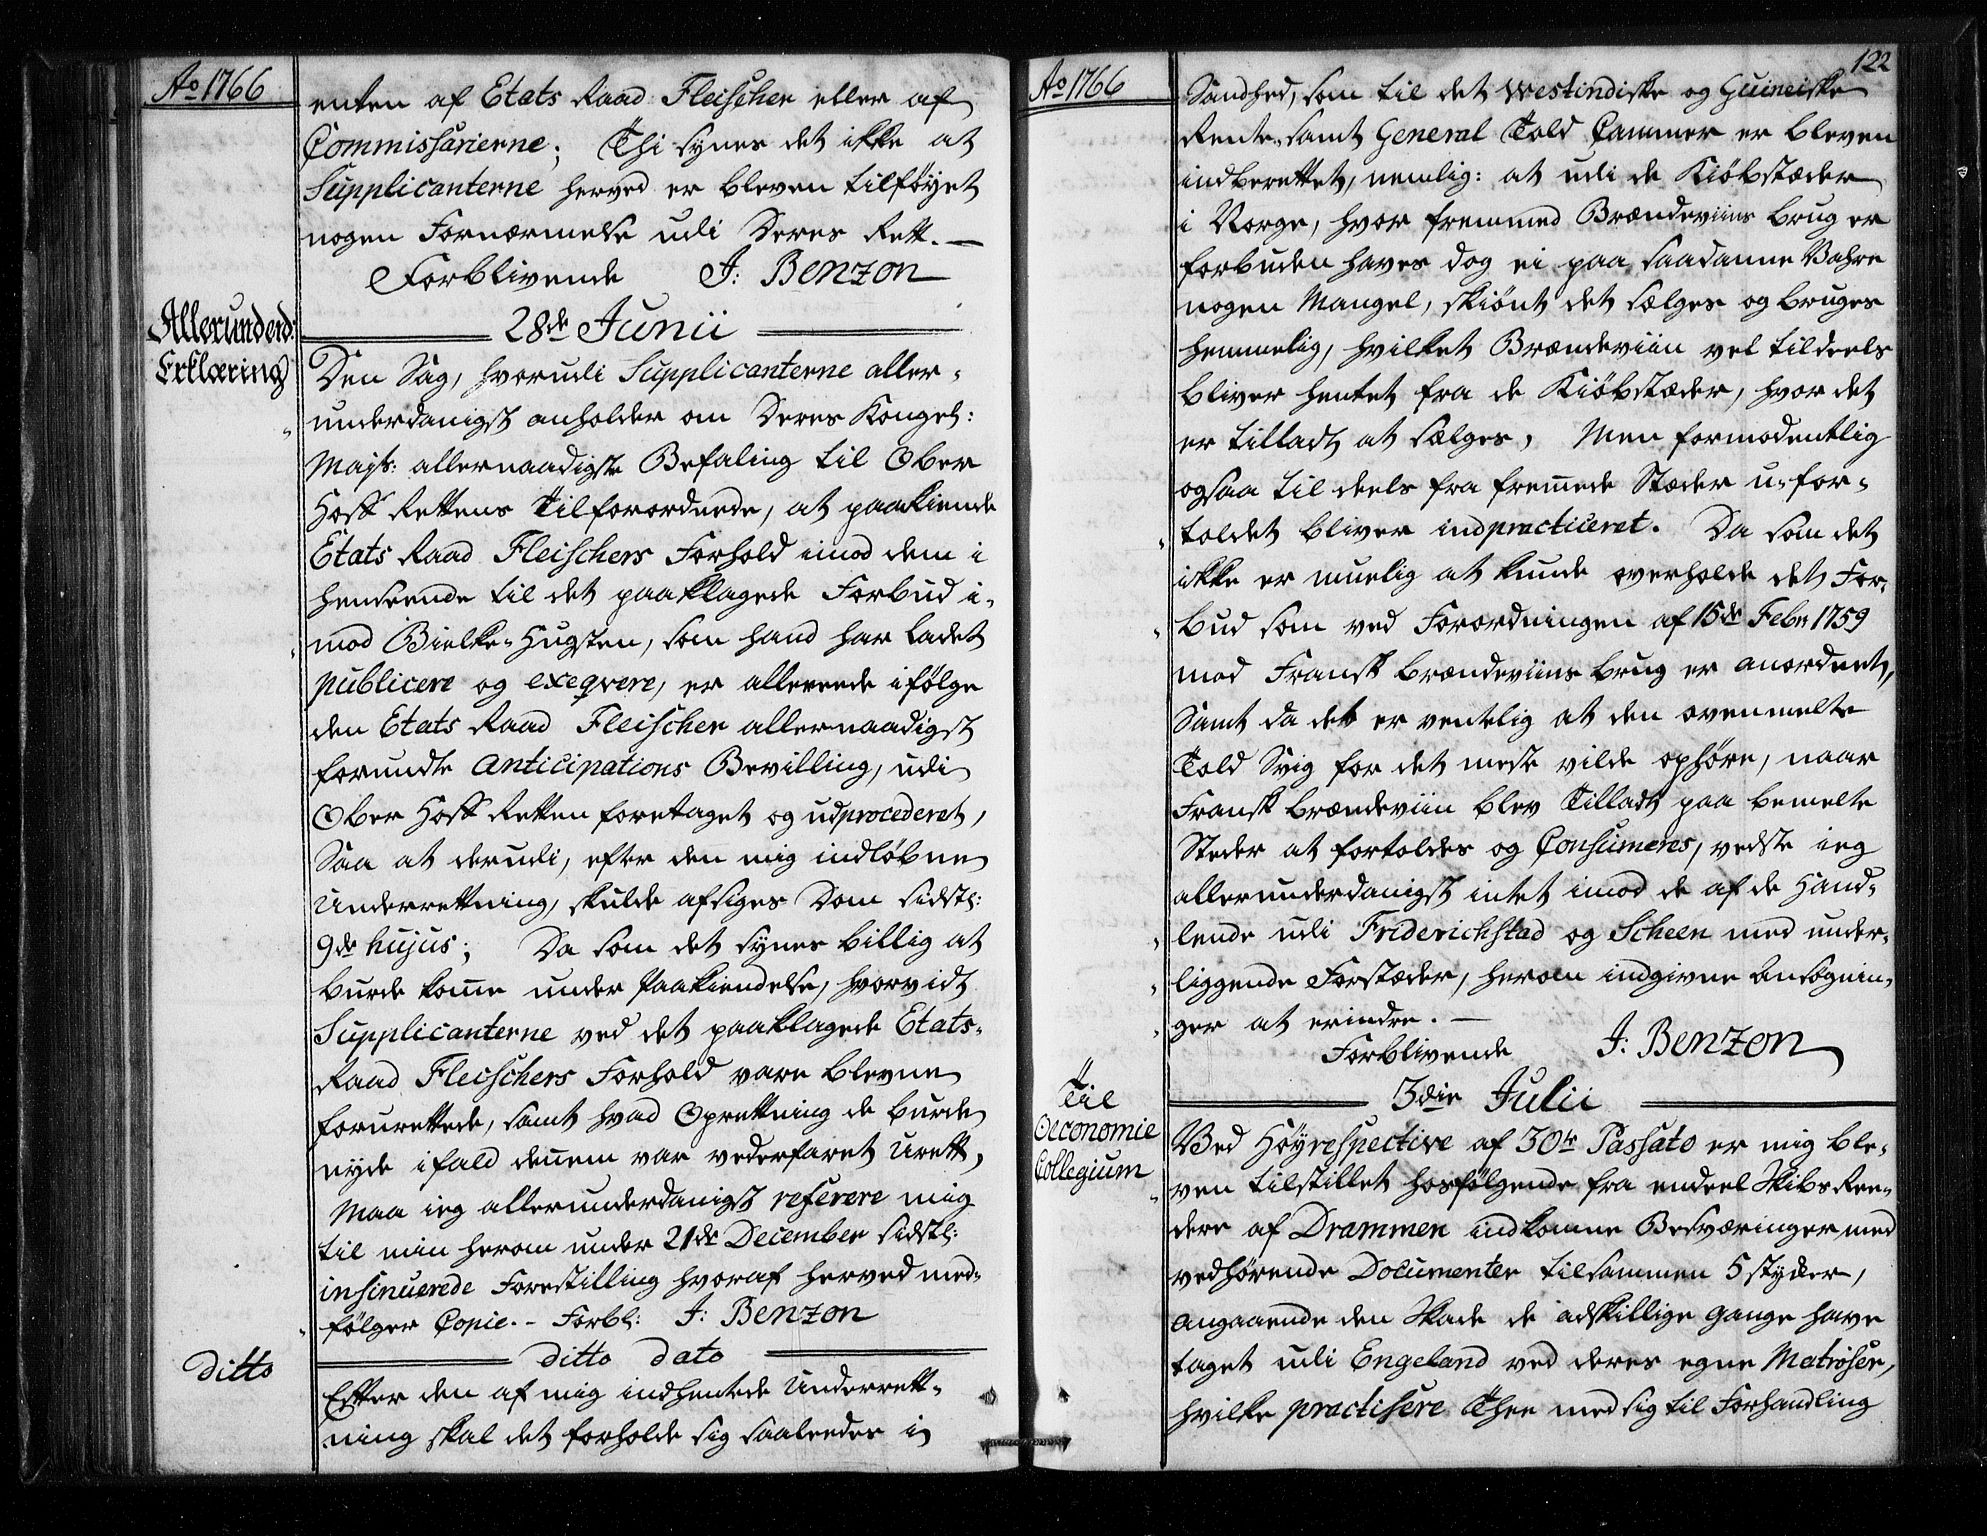 Ao 1766
enten af Etats Raad Fleischer eller af
Commissarierne; Thi synes det ikke at
Supplicanterne herved er bleven tilføyet
nogen Fornærmelse udi Deres Rett. —
Forblivende J: Benzon
28de Junii
Allerunderd:
Erklæring
Den Sag, hvorudi Supplicanterne aller-
underdanigst anholder om Deres Kongel:
Majts: allernaadigste Befaling til Ober
Hoff Rettens Tilforordnede, at paakiende
Etats Raad Fleischers Forhold imod dem i
henseende til det paaklagede Forbud i-
mod Bielke-Hugsten, som hand har ladet
publicere og exeqvere, er allereede ifølge
den Etats Raad Fleischer allernaadigst
forundte Anticipations Bevilling, udi
Ober Hoff Retten foretaget og udprocederet,
Saa at derudi, efter den mig indløbne
Underrettning, skulde afsiges Dom sidstl:
9de hujus; Da som det synes billig at
burde komme under Paakiendelse, hvorvidt
Supplicanterne ved det paaklagede Etats-
Raad Fleischers Forhold vare blevne
forurettede, samt hvad Oprettning de burde
nyde ifald dennem var vederfaret Urett,
Maa ieg allerunderdanigst referere mig
til min herom under 21de December sidstl:
insinuerede Forestilling hvoraf herved med-
følger Copie. - Forbl: J: Benzon
ditto dato
Ditto
Efter den af mig indhentede Underrett-
ning skal det forholde sig saaleedes i
122
Ao 1766
Sandhed, som til det Westindiske og Guineiske
Rente- samt General Told Cammer er bleven
indberettet, nemlig: at udi de Kiøbstæder
i Norge, hvor fremmed Brændeviins brug er
forbuden haves dog ei paa saadanne Vahre
nogen Mangel, skiønt det sælges og bruges
hemmelig, hvilket Brændeviin vel tildeels
bliver hentet fra de Kiøbstæder, hvor det
er tilladt at sælges, Men formodentlig
ogsaa til deels fra fremmede Stæder u-for-
toldet bliver indpracticeret. Da som det
ikke er muelig at kunde overholde det For-
bud som ved Forordningen af 15de Febr 1759
mod Fransk brændeviins brug er anordnet,
Samt da det er ventelig at den ovenmelte
Told Svig for det meste vilde ophøre, naar
Fransk brændeviin blev Tilladt paa bemelte
Steder at fortoldes og Consumeres, vedste ieg
allerunderdanigst intet imod de af de Hand-
lende udi Friderichstad og Scheen med under-
liggende Forstæder, herom indgivne Ansøgnin-
ger at erindre. —
Forblivende J: Benzon
3die Julii
Til
Oeconomie
Collegium
Ved Høyrespective af 30te Passato er mig ble-
ven tilstillet hosfølgende fra endeel Skibs Ree-
dere af Drammen indkomne Besværinger med
vedhørende Documenter tilsammen 5 stykker,
angaaende den Skade de adskillige gange have
taget udi Engeland ved deres egne Matroser,
hvilke practisere Thee med sig til Forhandling